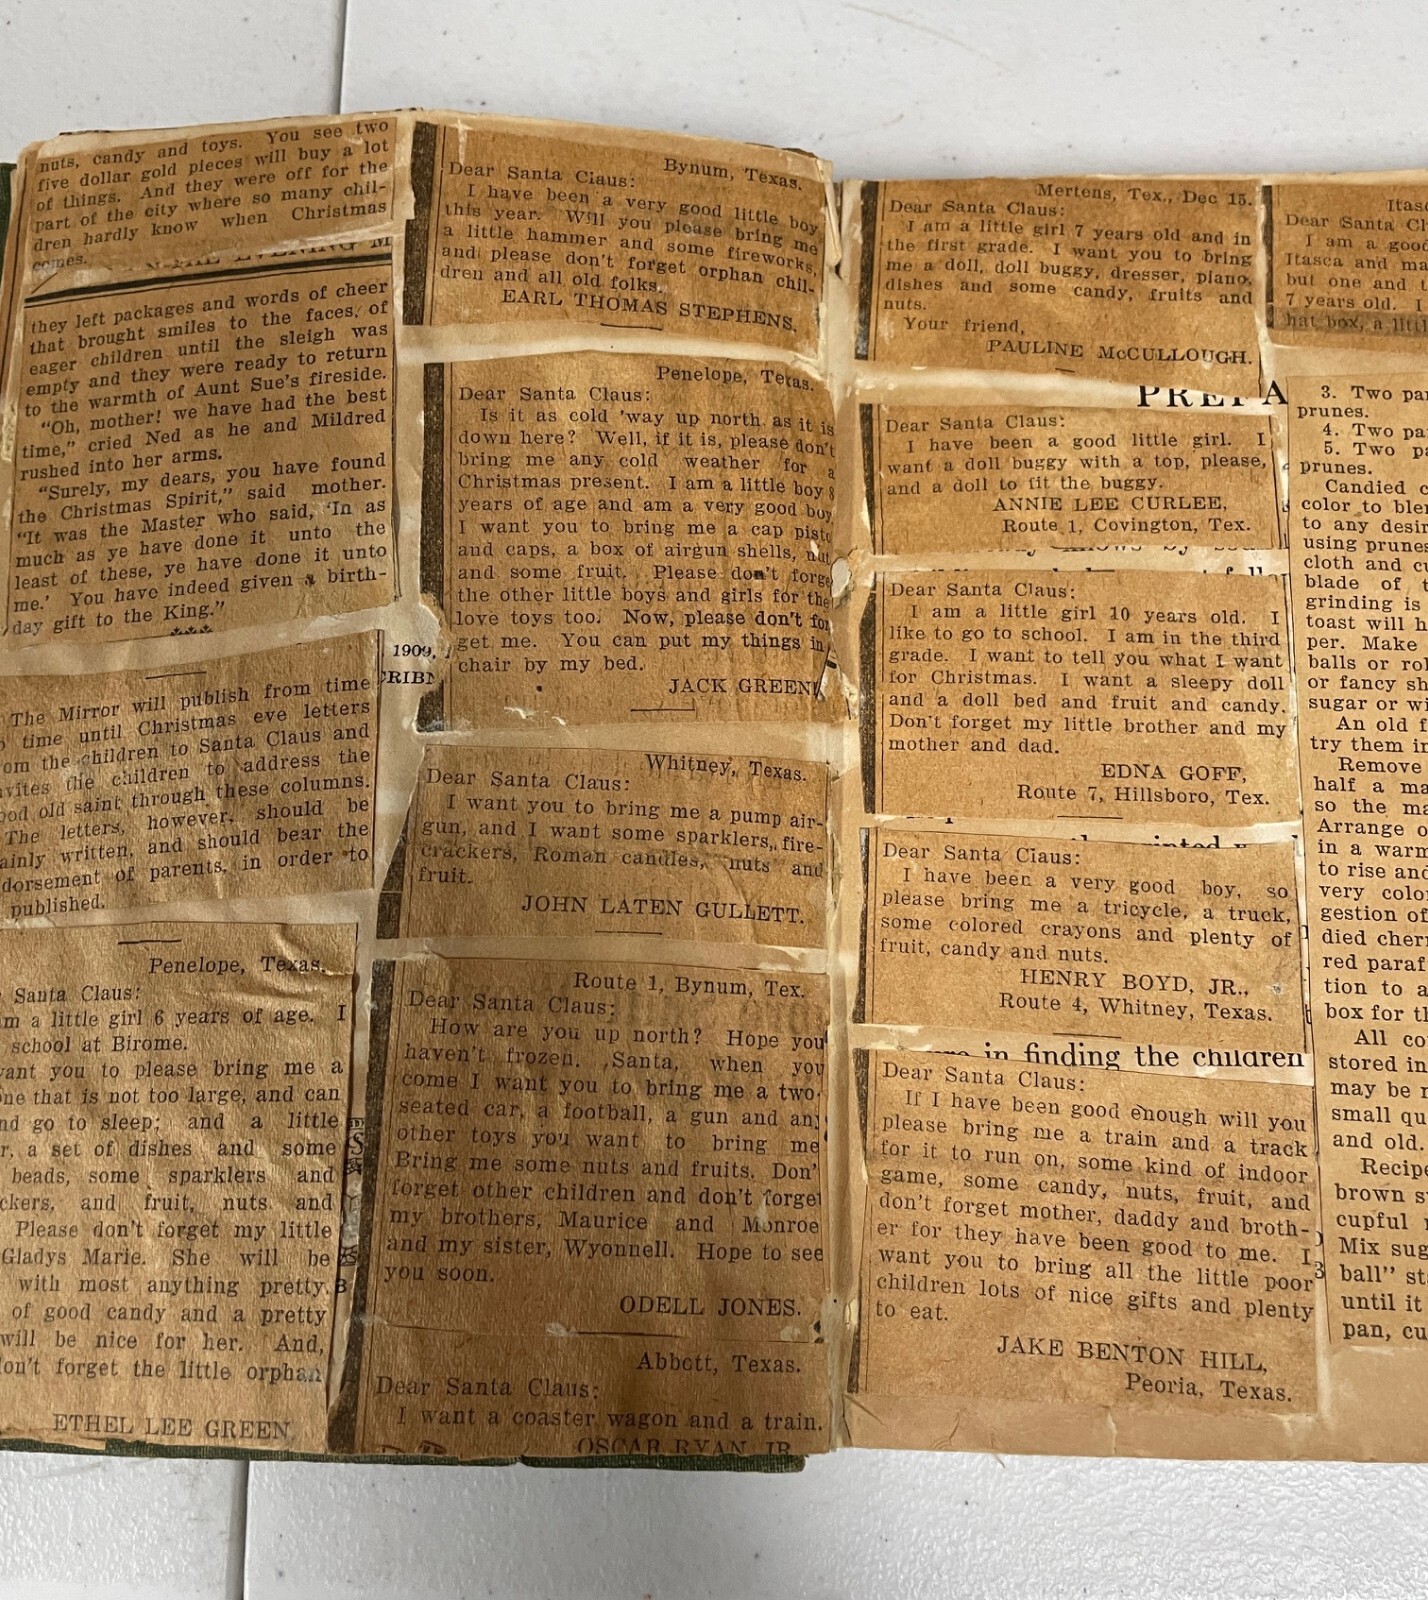 nuts, candy and toys. You see two
five dollar gold pieces will buy a lot
of things. And they were off for the
part of the city where so many chil-
dren hardly know when Christmas
comes.
they left packages and words of cheer
that brought smiles to the faces of
eager children until the sleigh was
empty and they were ready to return
to the warmth of Aunt Sue's fireside.
"Oh, mother! we have had the best
time," cried Ned as he and Mildred
rushed into her arms.
"Surely, my dears, you have found
the Christmas Spirit," said mother.
"It was the Master who said, 'In as
much as ye have done it unto the
least of these, ye have done it unto
me.' You have indeed given a birth-
day gift to the King."
The Mirror will publish from time
time until Christmas eve letters
the children to Santa Claus and
the children to address the
old saint through these columns.
The letters, however, should be
written, and should bear the
of parents, in order to
published.
Penelope, Texas.
Santa Claus:
a little girl 6 years of age. I
school at Birome.
you to please bring me a
that is not too large, and can
go to sleep; and a little
a set of dishes and some
beads, some sparklers and
and fruit, nuts and
Please don't forget my little
Gladys Marie. She will be
with most anything pretty.
of good candy and a pretty
will be nice for her. And,
forget the little orphan
ETHEL LEE GREEN.
1909,
Bynum, Texas.
Dear Santa Claus:
I have been a very good little boy
this year. Will you please bring me
a little hammer and some fireworks,
and please don't forget orphan chil-
dren and all old folks.
EARL THOMAS STEPHENS.
Penelope, Texas.
Dear Santa Claus:
Is it as cold 'way up north as it is
down here? Well, if it is, please don't
bring me any cold weather for a
Christmas present. I am a little boy 8
years of age and am a very good boy
I want you to bring me a cap
and caps, a box of airgun shells,
and some fruit. Please don't
the other little boys and girls for the
love toys too. Now, please don't for
get me. You can put my things in
chair by my bed.
JACK GREEN
Whitney, Texas.
Dear Santa Claus:
I want you to bring me a pump air-
gun, and I want some sparklers, fire-
crackers, Roman candles, nuts and
fruit.
JOHN LATEN GULLETT.
Route 1, Bynum, Tex.
Dear Santa Claus:
How are you up north? Hope you
haven't frozen. Santa, when you
come I want you to bring me a two-
seated car, a football, a gun and any
other toys you want to bring me
Bring me some nuts and fruits. Don'
forget other children and don't forget
my brothers, Maurice and Monroe
and my sister, Wyonnell. Hope to see
you soon.
ODELL JONES.
Abbott, Texas.
Dear Santa Claus:
I want a coaster wagon and a train.
OSCAR RYAN, JR.
Mertens, Tex., Dec 15.
Dear Santa Claus:
I am a little girl 7 years old and in
the first grade. I want you to bring
me a doll, doll buggy, dresser, piano,
dishes and some candy, fruits and
nuts.
Your friend,
PAULINE McCULLOUGH.
Dear Santa Claus:
I have been a good little girl. I
want a doll buggy with a top, please,
and a doll to fit the buggy.
ANNIE LEE CURLEE,
Route 1, Covington, Tex.
Dear Santa Claus:
I am a little girl 10 years old. I
like to go to school. I am in the third
grade. I want to tell you what I want
for Christmas. I want a sleepy doll
and a doll bed and fruit and candy.
Don't forget my little brother and my
mother and dad.
EDNA GOFF,
Route 7, Hillsboro, Tex.
Dear Santa Claus:
I have been a very good boy, so
please bring me a tricycle, a truck,
some colored crayons and plenty of
fruit, candy and nuts.
HENRY BOYD, JR.,
Route 4, Whitney, Texas.
in finding the children
Dear Santa Claus:
If I have been good enough will you
please bring me a train and a track
for it to run on, some kind of indoor
game, some candy, nuts, fruit, and
don't forget mother, daddy and broth-
er for they have been good to me. I
want you to bring all the little poor
children lots of nice gifts and plenty
to eat.
JAKE BENTON HILL,
Peoria, Texas.
Dear Santa
I am a good
Itasca and
but one and
7 years old. I
hat box, a
3. Two
prunes.
4. Two
5. Two
prunes.
Candied
color to
to any
using prunes
cloth and
blade of
grinding is
toast will
per. Make
balls or
or fancy
sugar or
An old
try them in
Remove
half a
so the
Arrange
in a warm
to rise and
very
gestion of
died
red
tion to a
box for
All
stored in
may be
small
and old.
brown
cupful
Mix
ball"
until it
pan,